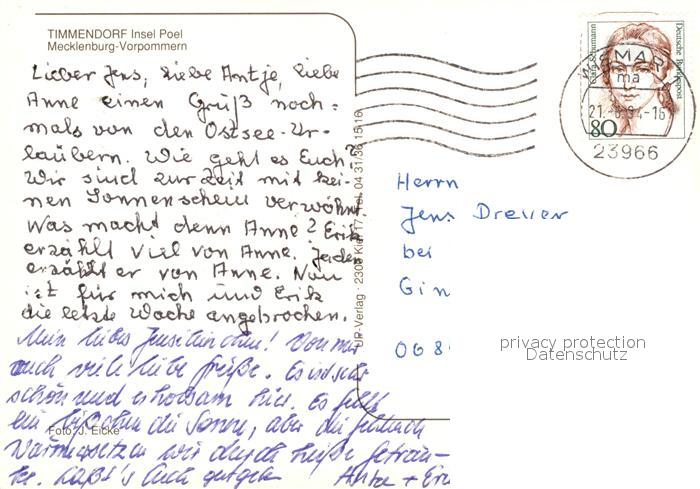 TIMMENDORF Insel Poel
Mecklenburg-Vorpommern
Lieber Jens, liebe Antje, liebe
Anne einen Gruß noch=
mals von den Ostsee-Ur-
laubern. Wie geht es Euch?
Wir sind zur Zeit mit kei-
nen Sonnenschein verwöhnt.
Was macht denn Anne? Erik
erzählt viel von Anne. Jeden
erzählt er von Anne. Nun
ist für mich und Erik
die letzte Woche angebrochen.
Mein liebes ! Von mir
auch viele liebe Grüße. Es ist sehr
schön und erholsam hier. Es fehlt
ein bißchen die Sonne, aber die
wir durch heiße Geträn-
ke. Laßt's Euch gutgehn Anke + Eri
Foto: J. Eicke
UP-Verlag · 2300 Kiel 17 · Tel. 04 31/36 15 16
Clara Schumann
Deutsche Bundespost
80
WISMAR
ma
21.-8.94-16
23966
Herrn
Jens Drever
bei
Gin
068
privacy protection
Datenschutz